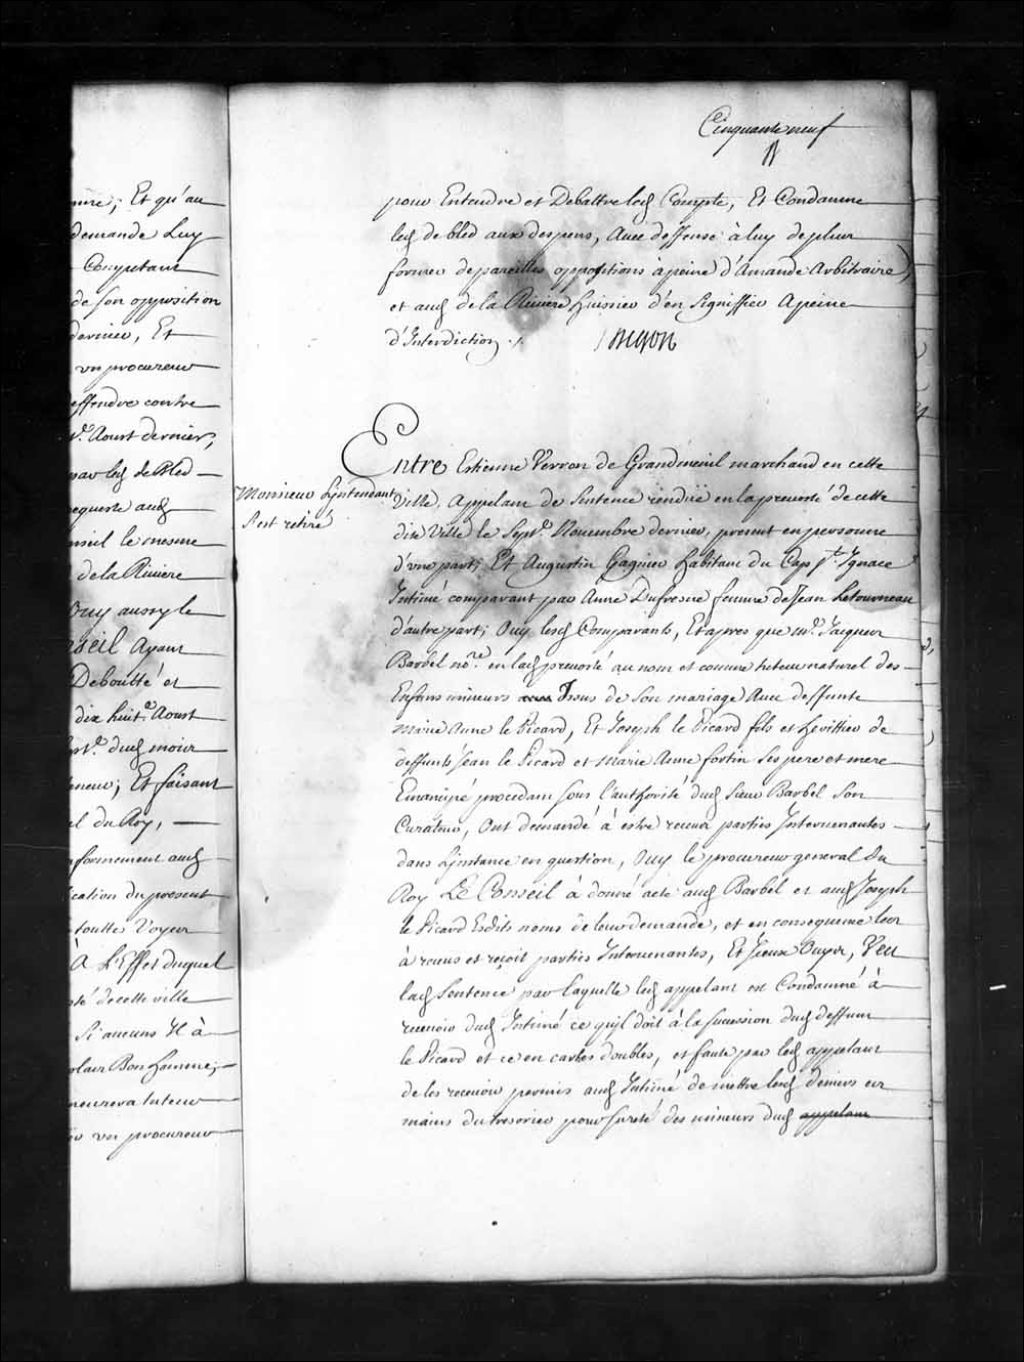 Cinquante neuf
mire; Et qu'au
demande Luy
Comptant
de son opposition
dernier, Et
un procureur
effendre contre
Aoust dernier,
par led de Bled
equeste aud
nseil le mesme
de la Riviere
Ouy aussy le
nseil Ayant
Deboutté et
dix huit.e Aoust
dud mois
neur; Et faisant
el du Roy,
formement aud
cation du present
touttes Voyes
A L'Effet duquel
té de cette ville
Si aucuns Il à
Bon homme;
neurera tuteur
un procureur
pour Entendre et Debattre led Compte, Et Condamne
led de bled aux despens, Avec deffense à luy de plus
former de pareilles oppositions à peine d'Amande Arbitraire,
et aud de la Riviere huissier d'en signiffier A peine
d'Interdiction ./.
Begon
Entre Estienne Verron de Grandmenil marchand en cette
Monsieur L'jntendant
s'est retiré
Ville, Appelant de Sentence rendüe en la prevosté de cette
dite Ville le Sept.e Novembre dernier, present en personne
d'une part; Et Augustin Gagnier habitant du Cap S.t Ignace
Intimé comparant par Anne Dufresne femme de Jean Letourneau
d'autre part; Ouy lesd Comparants, Et apres que m.e Jacques
Barbel no.re en lad prevosté au nom et comme tuteur naturel des
Enfans mineurs Issus de son mariage Avec deffunte
Marie Anne le Picard, Et Joseph le Picard fils et herittier de
deffunts Jean le Picard et Marie Anne fortin ses pere et mere
Emancipé procedant sous l'authorité dud Sieur Barbel son
Curateur, Ont demandé à estre receus parties Intervenantes
dans L'jnstance en question, Ouy le procureur general du
Roy LE Conseil à donné acte aud Barbel et aud Joseph
le Picard Esdits noms de leur demande, et en consequence les
à receus et reçoit parties Intervenantes, Et Iceux Ouys, Veu
lad Sentence par laquelle led appelant est Condamné à
recevoir dud Intimé ce qu'jl doit à la succession dud deffunt
le Picard et ce en cartes doubles, et faute par led appelant
de les recevoir permis aud Intimé de mettre lesd deniers es
mains du tresorier pour sureté des mineurs dud appelant